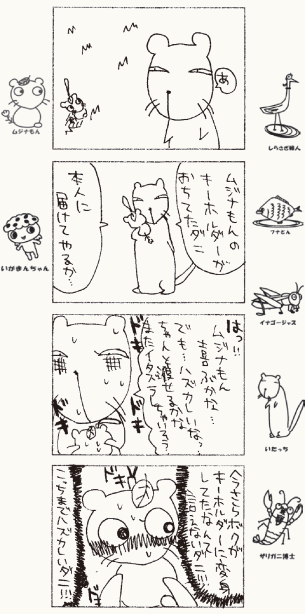 あ
ムジナもんの
キーホルダーが
おちてたダニ
本人に
届けてやるか…
はっ!!
ムジナもん
喜ぶかな…
でも…ハズカしいな。
ちゃんと渡せるかな
またイタズラしちゃいそう?
ドキ
ドキ
今さらボクが
キーホルダーに変身
してたなんて
言えないダニ!!!
こっちまでハズカしいダニ!!!
ドキ
ドキ
ムジナもん
いがまんちゃん
しらさぎ婦人
フナどん
イナゴージャス
いたっち
ザリガニ博士